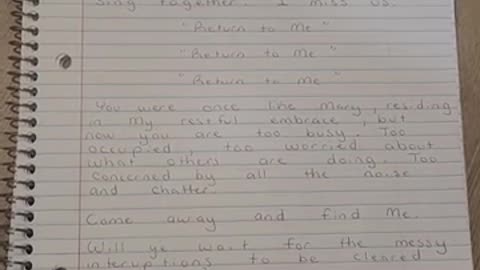 Sing together. I miss us.
"Return to Me"
"Return to Me"
"Return to Me"
You were once like Mary, residing
in my restful embrace, but
now you are too busy. Too
occupied, too worried about
what others are doing. Too
concerned by all the noise
and chatter.
Come away and find Me.
Will ye wait for the messy
interuptions to be cleared